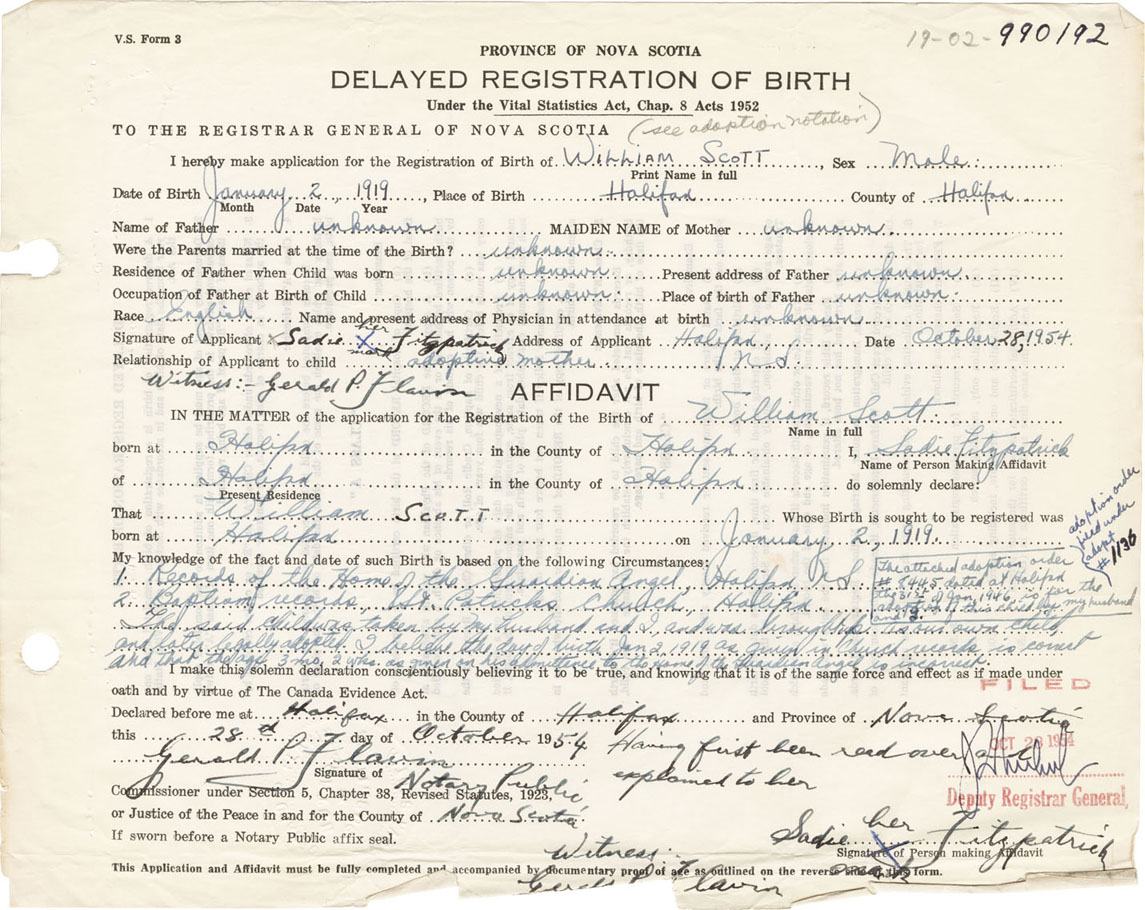 V.S. Form 3
19-02-990192
PROVINCE OF NOVA SCOTIA
DELAYED REGISTRATION OF BIRTH
Under the Vital Statistics Act, Chap. 8 Acts 1952
(see adoption notation)
TO THE REGISTRAR GENERAL OF NOVA SCOTIA
I hereby make application for the Registration of Birth of WILLIAM SCOTT, Sex Male
Print Name in full
Date of Birth January 2, 1919, Place of Birth Halifax County of Halifax
Month Date Year
Name of Father unknown MAIDEN NAME of Mother unknown
Were the Parents married at the time of the Birth? unknown
Residence of Father when Child was born unknown Present address of Father unknown
Occupation of Father at Birth of Child unknown Place of birth of Father unknown
Race English Name and present address of Physician in attendance at birth unknown
Signature of Applicant x Sadie her x mark Fitzpatrick Address of Applicant Halifax, Date October 28, 1954
Relationship of Applicant to child adoptive mother N.S.
Witness:- Gerald P. Flavin
AFFIDAVIT
IN THE MATTER of the application for the Registration of the Birth of William Scott
Name in full
born at Halifax in the County of Halifax I, Sadie Fitzpatrick
Name of Person Making Affidavit
of Halifax in the County of Halifax do solemnly declare:
Present Residence
That William SCOTT Whose Birth is sought to be registered was
born at Halifax on January 2, 1919.
adoption order
filed under
adopt
#1136
My knowledge of the fact and date of such Birth is based on the following Circumstances:
1. Records of the Home of the Guardian Angel, Halifax N.S.
2. Baptism records, St. Patricks Church, Halifax
The attached adoption order
# 8445 dated at Halifax
the 31st of Jan, 1946, is for the
adoption of this child by my husband
and I.
The said child was taken by my husband and I, and was brought up as our own child,
and later legally adopted. I believe the day of birth Jan 2, 1919 as given in Church records, is correct
and the age 3 mo, 2 was as given on admittance to the Home of the Guardian Angel is incorrect.
I make this solemn declaration conscientiously believing it to be true, and knowing that it is of the same force and effect as if made under
oath and by virtue of The Canada Evidence Act.
FILED
OCT 28 1954
Deputy Registrar General
Declared before me at Halifax in the County of Halifax and Province of Nova Scotia
this 28th day of October 1954 Having first been read over and
explained to her
Gerald P. Flavin
Signature of Notary Public
Commissioner under Section 5, Chapter 38, Revised Statutes, 1923,
or Justice of the Peace in and for the County of Nova Scotia
If sworn before a Notary Public affix seal.
Sadie her x mark Fitzpatrick
Signature of Person making Affidavit
Witness:
Gerald P. Flavin
This Application and Affidavit must be fully completed and accompanied by documentary proof of age as outlined on the reverse side of this form.